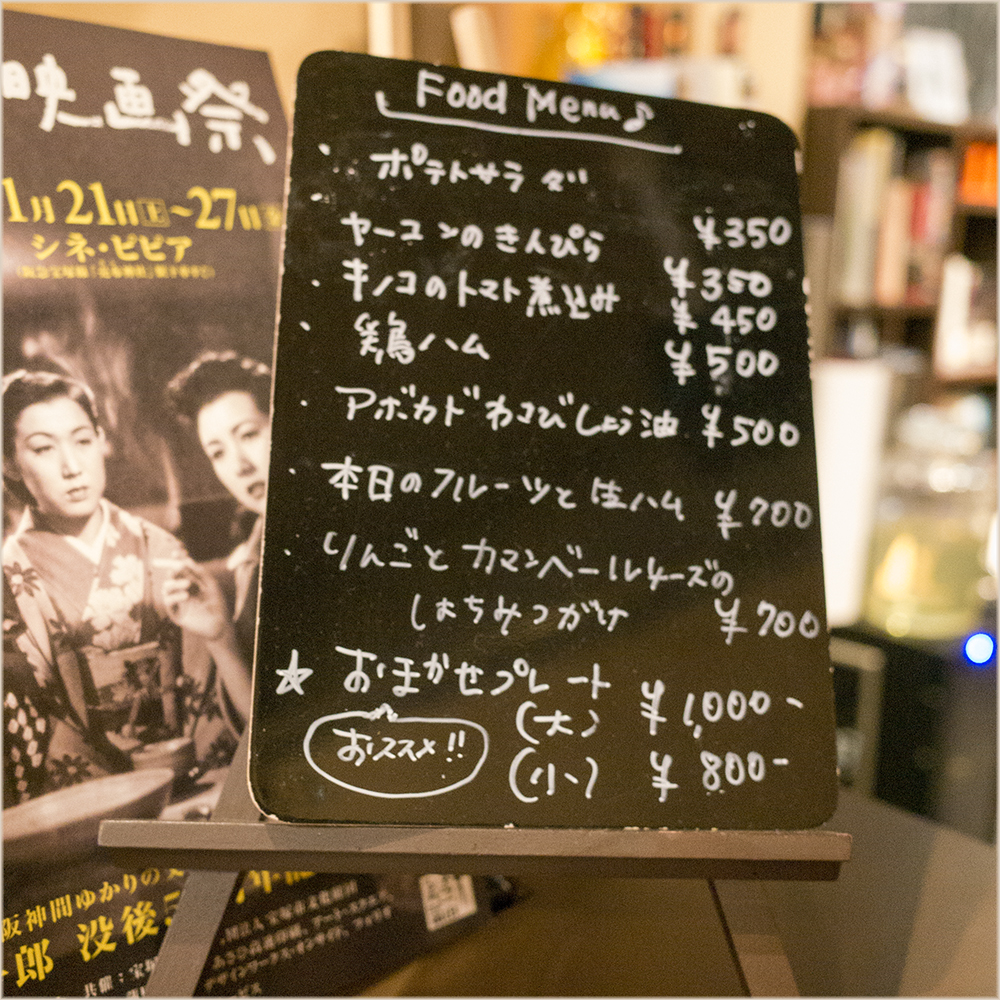 映画祭
1月21日(土)~27日
シネ・ピピア
Food Menu♪
・ポテトサラダ ¥350
・ヤーコンのきんぴら ¥350
・キノコのトマト煮込み ¥450
・鶏ハム ¥500
・アボカドわさびしょう油 ¥500
・本日のフルーツと生ハム ¥700
・りんごとカマンベールチーズの
はちみつがけ ¥700
☆おまかせプレート
(大) ¥1,000-
おススメ!! (小) ¥800-
阪神間ゆかりの
郎 没後
共催:宝塚